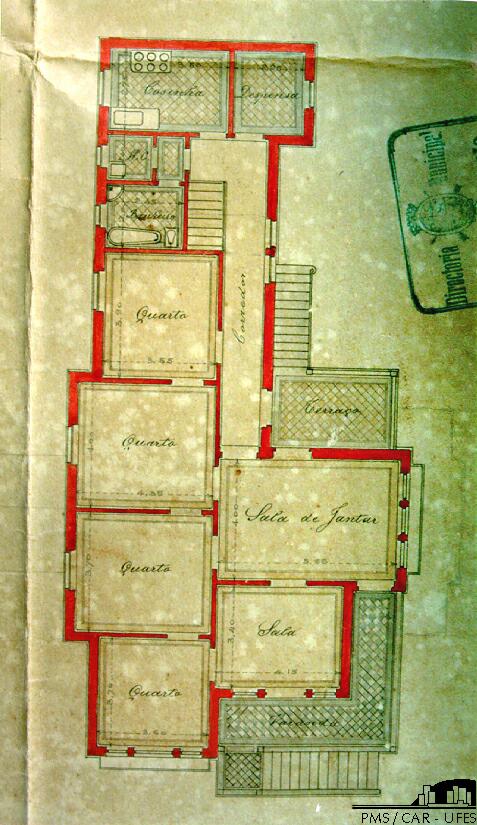 Cosinha
Despensa
W.C.
Banheiro
Quarto
3.90
3.55
Corredor
Terraço
Quarto
4.35
Sala de Jantar
4.00
5.65
Quarto
3.70
Sala
3.40
4.15
Quarto
3.60
Varanda
Directoria
Municipal
PMS / CAR - UFES